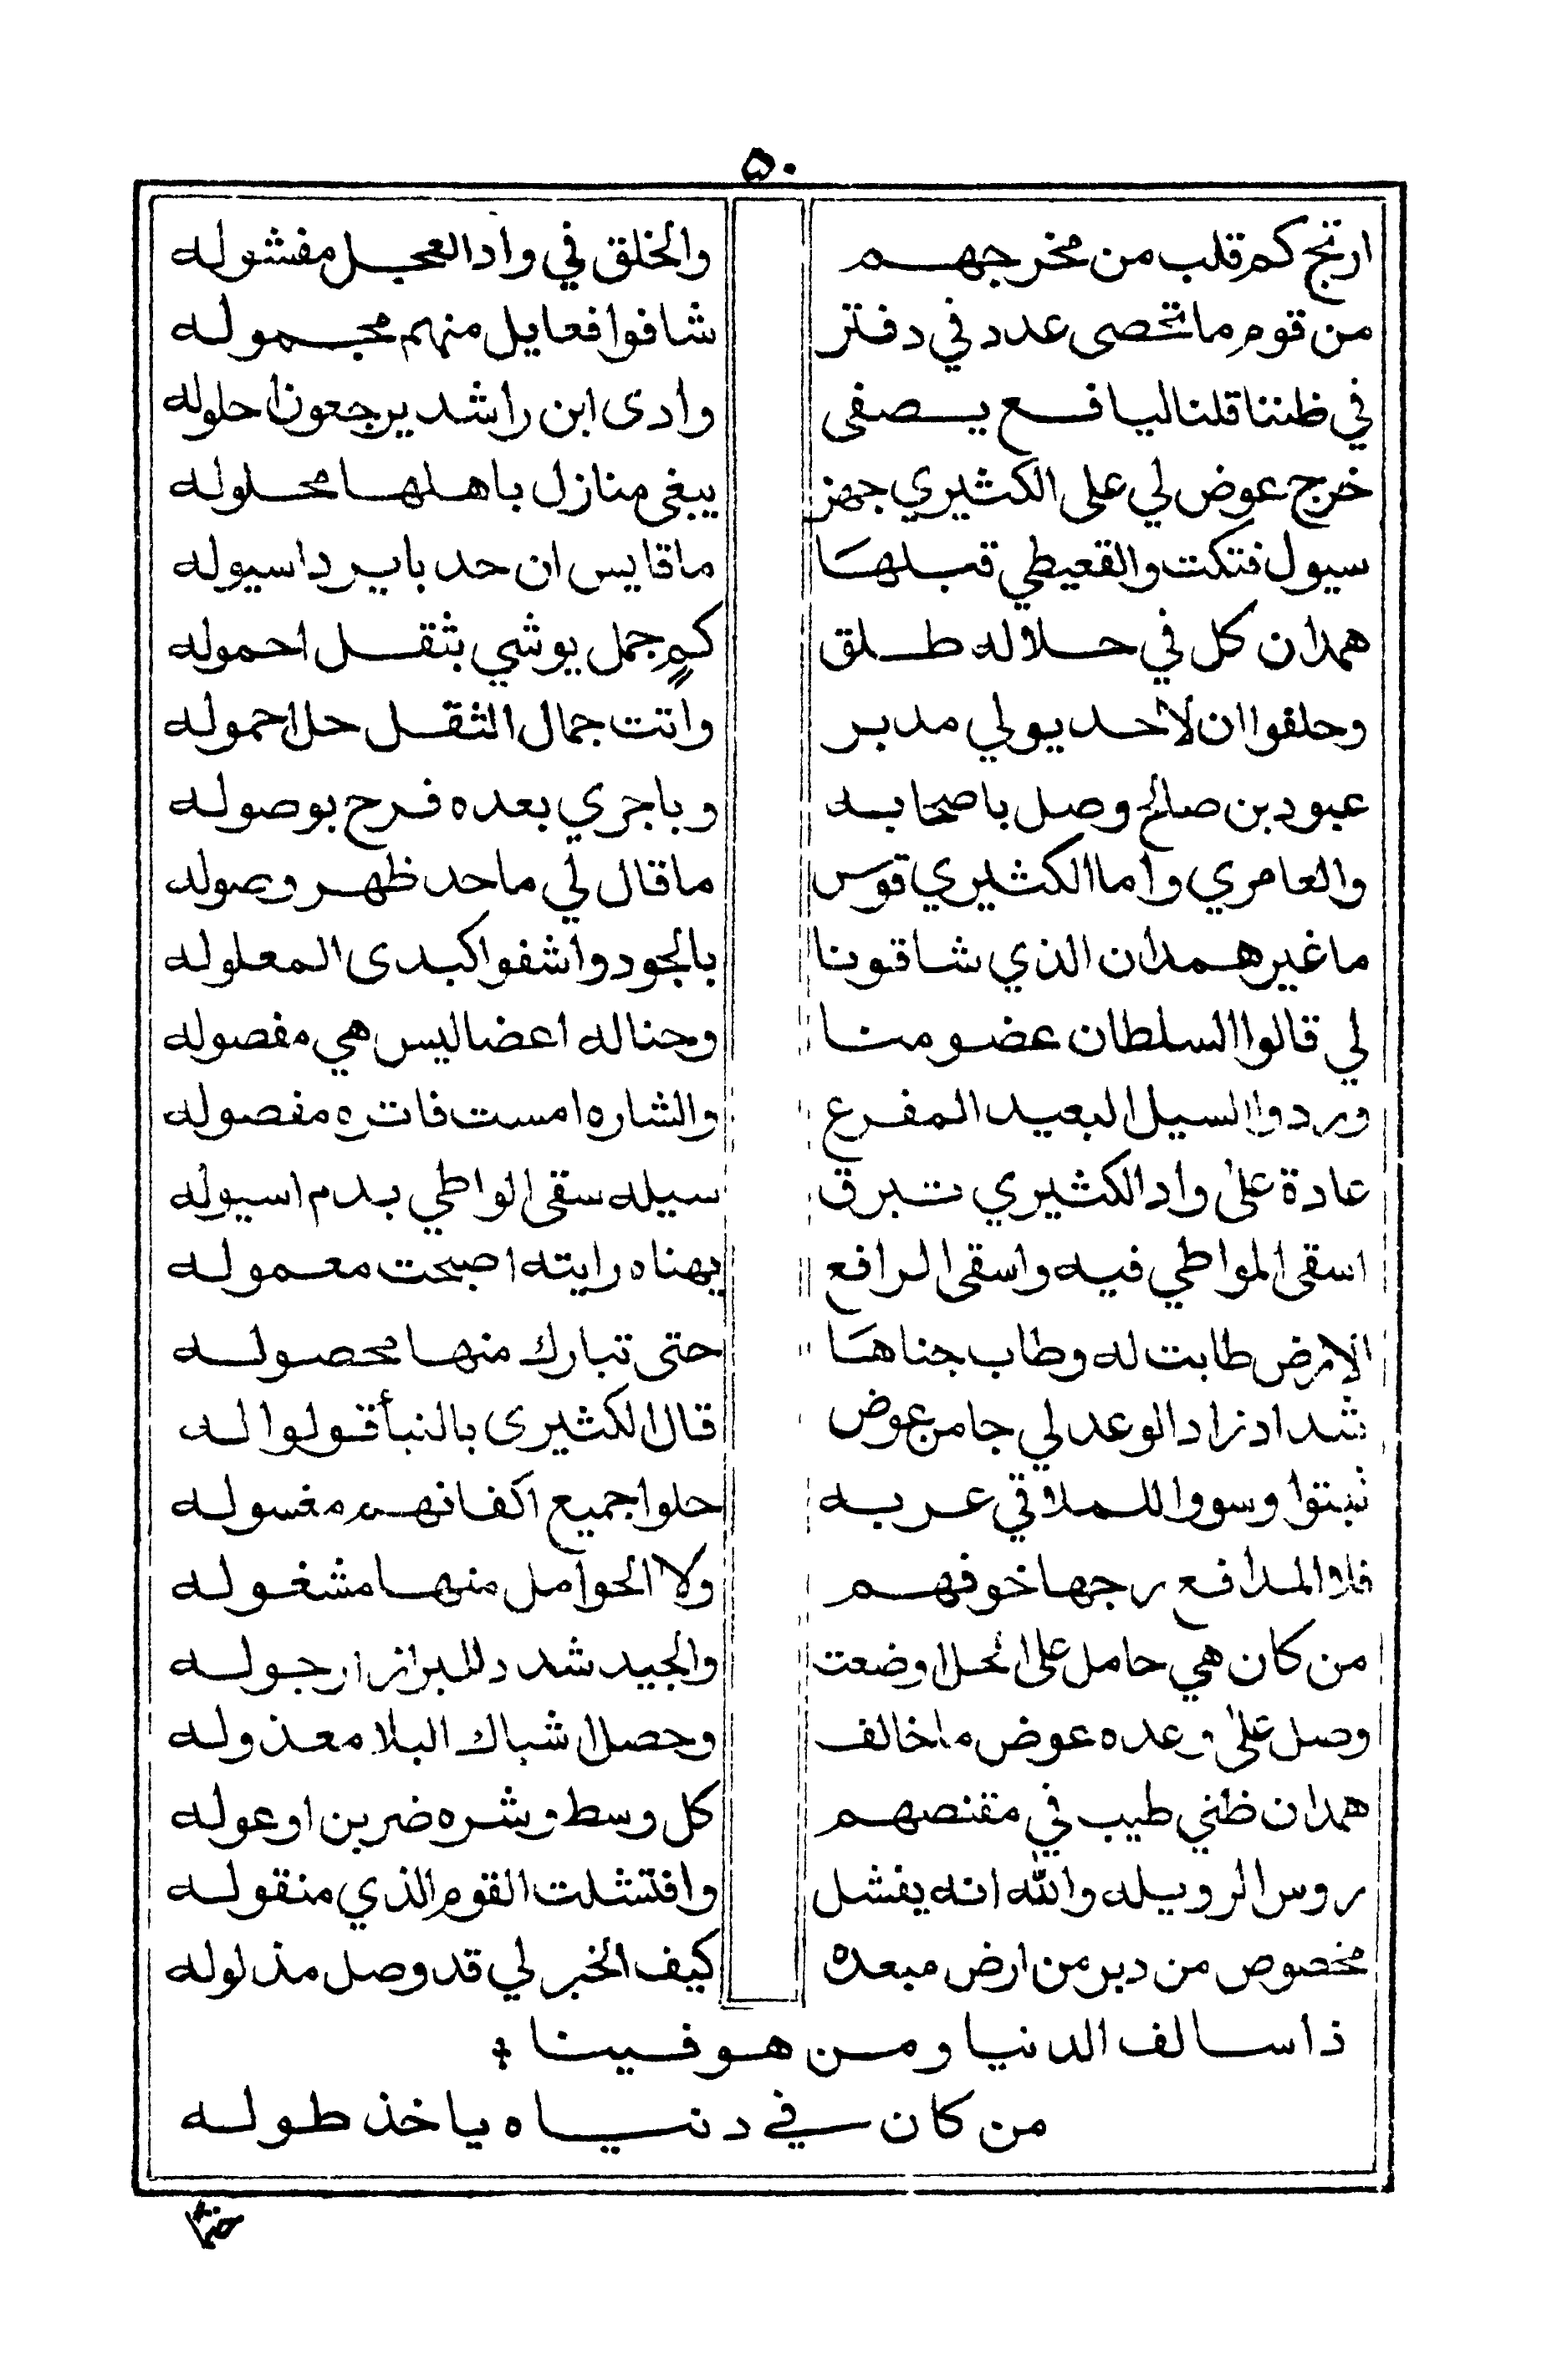 ۵۰
ارتج كم قلب من مخرجهم والخلق في واد العجل مفشوله
من قوم ما تحصى عدد في دفتر شافوا فعايل منهم مجموله
في ظننا قلنا ليافع يصفى وادى ابن راشد يرجعون احلوله
خرج عوض لي على الكثيري جهز يبغى منازل باهلها محلوله
سيول فتكت والقعيطي قبلها ماقايس ان حد بايرد اسيوله
همدان كل في حلاله طلق كم جمل يوشي بثقل احموله
وحلفوا ان لاحد يولي مدبر وانت جمال الثقل حل احموله
عبود بن صالح وصل باصحابه وباجري بعده فرح بوصوله
والعامري واما الكثيري قوس ماقال لي ماحد ظهر وصوله
ماغير همدان الذي شاقونا بالجود واشفوا كبدى المعلوله
لي قالوا السلطان عضو منا وحناله اعضا ليس هي مفصوله
وردوا السيل البعيد المفرع والشاره امست فاتره مفصوله
عادة على واد الكثيري تبرق سيله سقى الواطي بدم اسيوله
اسقى المواطي فيه واسقى الرافع يهناه رايته اصبحت معموله
الارض طابت له وطاب جناها حتى تبارك منها محصوله
شداد زاد الوعد لي جا من عوض قال الكثيرى بالنبأ قولوا له
نبتوا وسووا للملاقي عربه حلوا جميع اكفانهم مغسوله
فلا المدافع رجها خوفهم ولا الحوامل منها مشغوله
من كان هي حامل على الحل اوضعت والجيد شدد للبراز ارجوله
وصل على وعده عوض ماخالف وحصل شباك البلا معذوله
همدان ظني طيب في مقنصهم كل وسط وشره ضربن اوعوله
روس الرويله والله انه يفشل وافتشلت القوم الذي منقوله
مخصوص من دبر من ارض مبعده كيف الخبر لي قد وصل مذلوله
ذا سالف الدنيا ومن هو فينا
من كان في دنياه ياخذ طوله